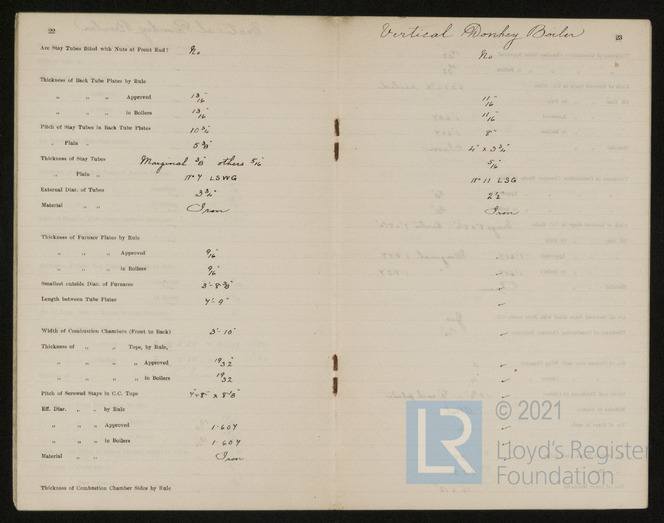 22
Are Stay Tubes fitted with Nuts at Front End? No
Thickness of Back Tube Plates by Rule
„ „ „ Approved 13/16"
„ „ „ in Boilers 13/16"
Pitch of Stay Tubes in Back Tube Plates 10 3/4"
„ Plain „ 5 3/8"
Thickness of Stay Tubes Marginal 3/8" others 5/16"
„ Plain „ No 7 LSWG
External Diar. of Tubes 3 3/4"
Material „ „ Iron
Thickness of Furnace Plates by Rule
„ „ „ Approved 9/16"
„ „ „ in Boilers 9/16"
Smallest outside Diar. of Furnaces
Length between Tube Plates 7'-9"
Width of Combustion Chambers (Front to Back) 3'-10"
Thickness of „ „ Tops, by Rule,
„ „ „ „ Approved 19/32"
„ „ „ „ in Boilers 19/32
Pitch of Screwed Stays in C.C. Tops
Eff. Diar. „ „ by Rule
„ „ „ Approved 1.604
„ „ „ in Boilers 1.604
Material „ „ Iron
Thickness of Combustion Chamber Sides by Rule
Vertical Donkey Boiler 23
No
11/16"
11/16"
8"
4" x 3 3/4"
5/16"
No 11 LSG
2 1/2"
Iron
© 2021
LR Lloyd's Register
Foundation